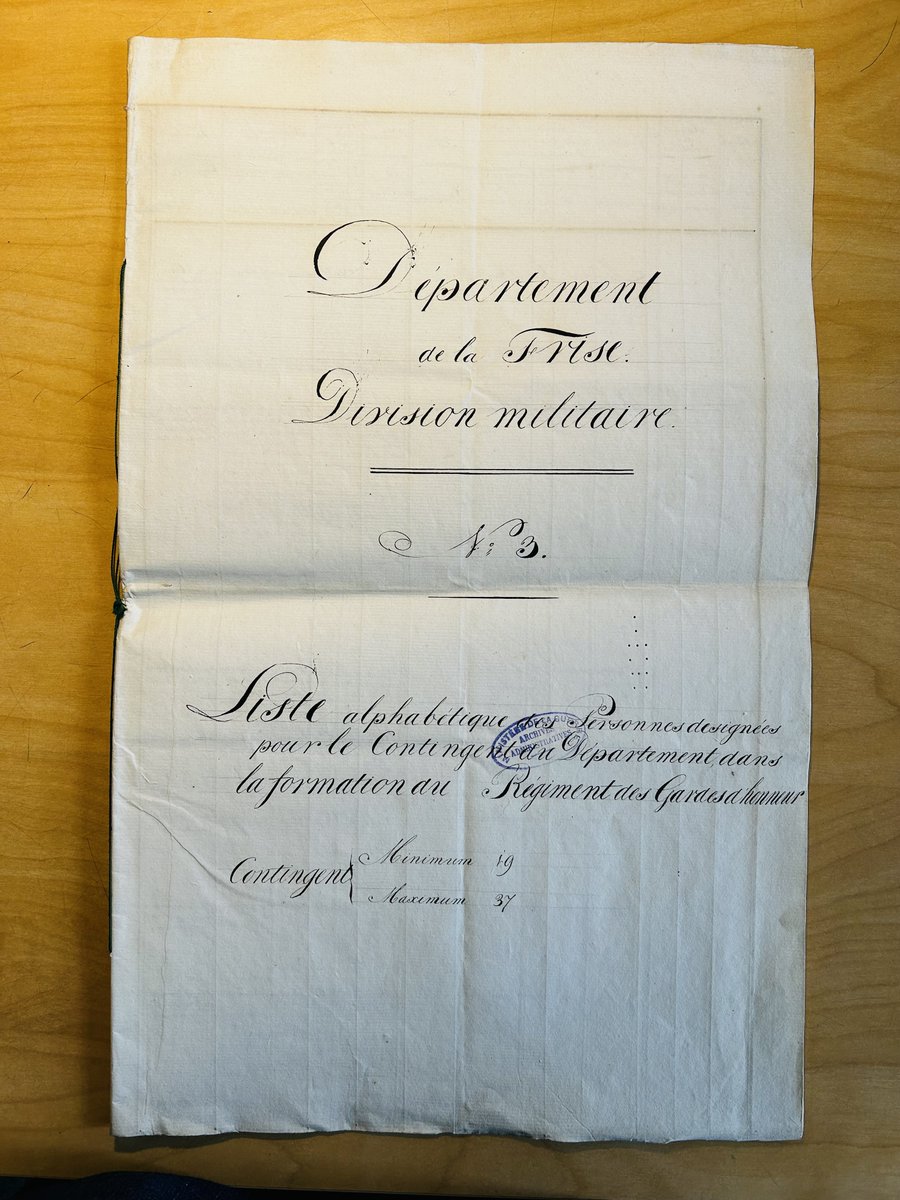 Département
de la Frise.
Division militaire.
N.º 3.
Liste alphabétique des Personnes designées
pour le Contingent du Département, dans
la formation du Régiment des Gardes d'honneur
MINISTÈRE DE LA GUERRE
ARCHIVES
ADMINISTRATIVES
Contingent { Minimum 19
Maximum 37